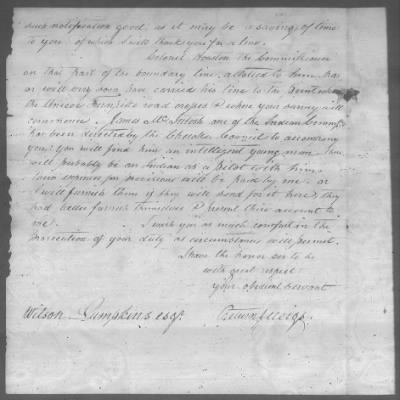 such notification good, as it may be a saving of time
to you, of which I will thank you for a line.
Colonel Houston the Commissioner
on that part of the boundary line, allotted to him has
or will very soon run carried his line to the point where
the Unicoi Turnpike road crosses & where your survey will
commence. James McIntosh one of the Indian
has been directed by the Cherokee Council to accompany
you: You will find him an intelligent young man. There
will probably be an Indian as a pilot with him.
expense for provisions will be paid by me, or
I will furnish them if they will send for it here, they
had better furnish themselves & present their account to
me. I wish you as much comfort in the
execution of your duty as circumstances will permit.
I have the honor sir to be
with great respect
your obedient servant
Wilson Lumpkins esqr. Return J Meigs